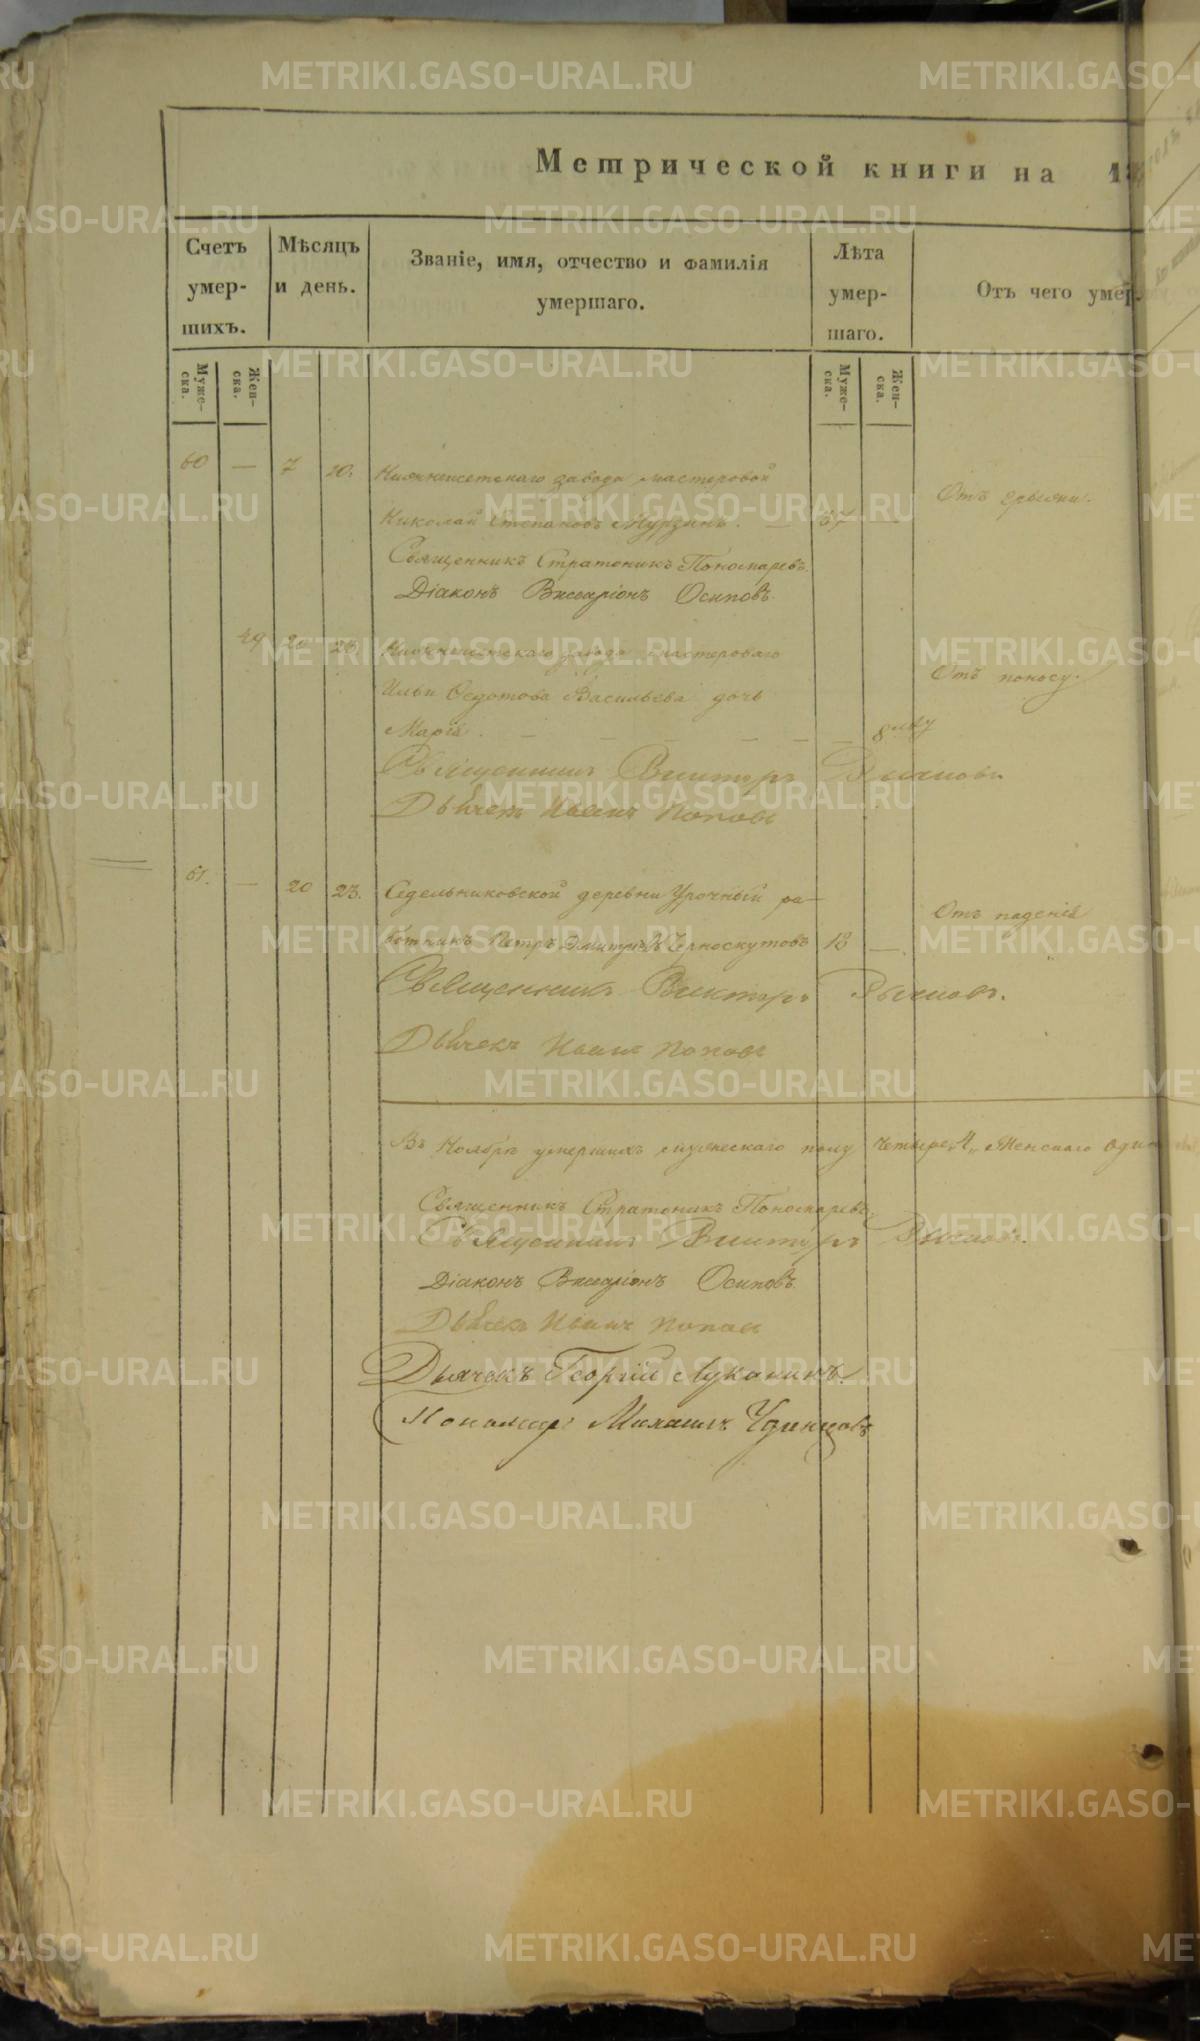 Метрической книги на 18
Счетъ умер- шихъ.
Мѣсяцъ и день.
Званіе, имя, отчество и фамилія умершаго.
Лѣта умер- шаго.
Отъ чего умер
Муже- ска.
Жен- ска.
Муже- ска.
Жен- ска.
60 — 7 10. Нижнеисетскаго завода мастеровой
Отъ грыжи.
Николай Степановъ Мурзинъ. — 57 —
Священникъ Стратоникъ Пономаревъ.
Діаконъ Виссаріонъ Осиповъ.
49 20 23 Нижнеисетскаго завода мастероваго
Отъ поносу.
Ильи Федотова Васильева дочь
Марія. — — — — — —
Священникъ Викторъ
Дьячекъ Иванъ Поповъ
61. — 20 23. Седельниковской деревни Урочный ра-
Отъ паденія
ботникъ Петръ Дмитріевъ Черноскутовъ 18 —
Священникъ Викторъ
Дьячекъ Иванъ Поповъ
Въ Ноябрѣ умершихъ мужескаго полу четыре „4„ Женскаго один
Священникъ Стратоникъ Пономаревъ.
Священникъ Викторъ
Діаконъ Виссаріонъ Осиповъ.
Дьячекъ Иванъ Поповъ
Дьячекъ Георгій Луканинъ.
Пономарь Михаилъ
METRIKI.GASO-URAL.RU